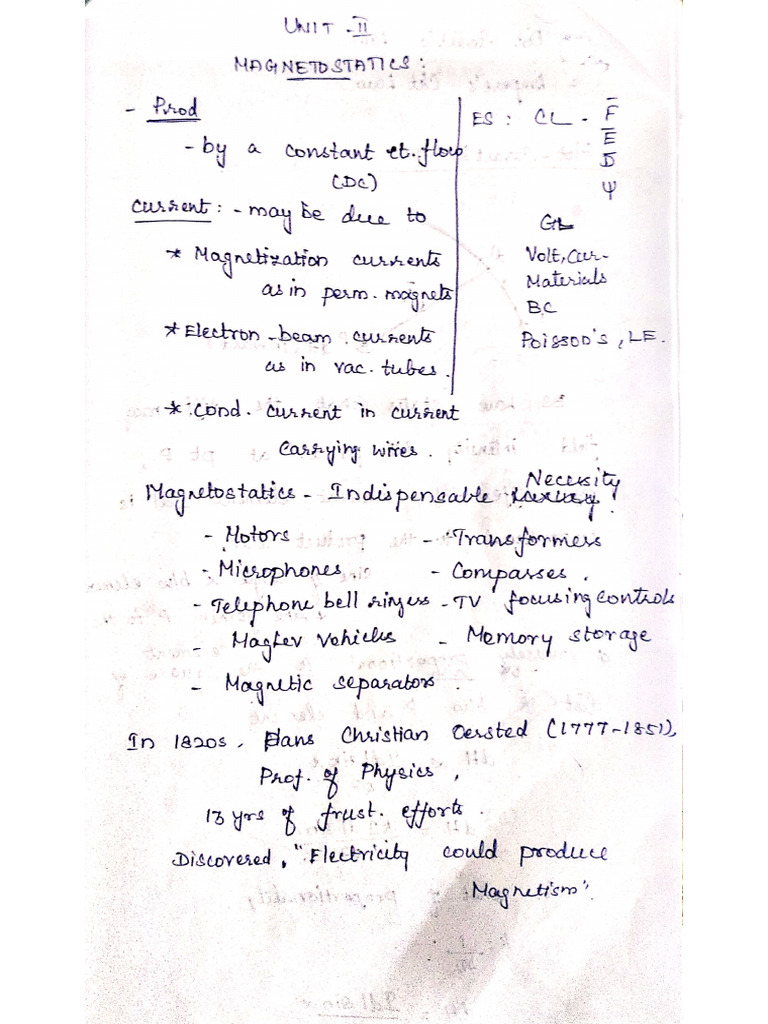 UNIT - II
MAGNETOSTATICS :
- Prod
- by a constant ct. flow
(DC)
Current : - may be due to
* Magnetization currents
as in perm. magnets
* Electron - beam currents
as in vac. tubes.
* Cond. current in current
Carrying wires.
ES : CL - F̅
E̅
D̅
Ψ
GL
Volt, Cur-
Materials
BC
Poisson's, LE.
Necessity
Magnetostatics - Indispensable Luxury !
- Motors - Transformers
- Microphones - Compasses.
- Telephone bell ringers - TV focusing controls
- Maglev vehicles - Memory storage
- Magnetic separators.
In 1820s, Hans Christian Oersted (1777-1851),
Prof. of Physics,
13 yrs of frust. efforts.
Discovered, "Electricity could produce
Magnetism".